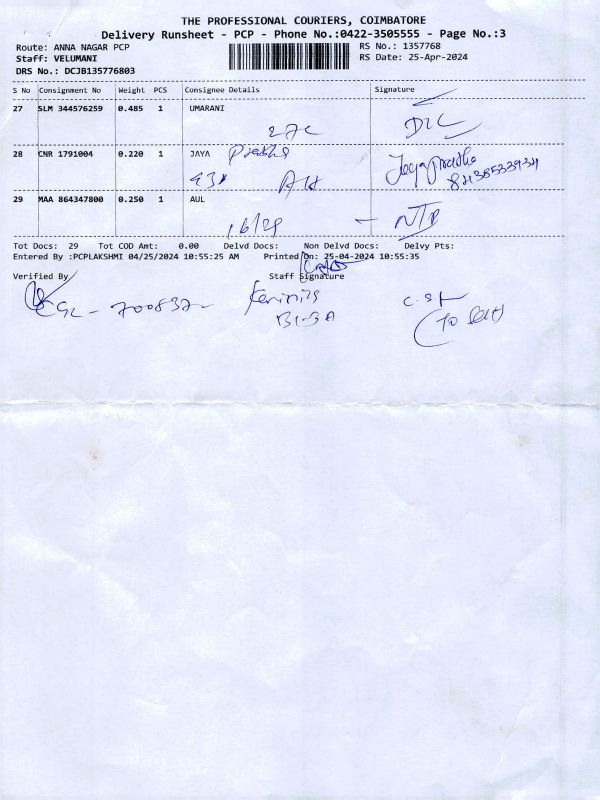 THE PROFESSIONAL COURIERS, COIMBATORE
Delivery Runsheet - PCP - Phone No.:0422-3505555 - Page No.:3
Route: ANNA NAGAR PCP RS No.: 1357768
Staff: VELUMANI RS Date: 25-Apr-2024
DRS No.: DCJB135776803
S No Consignment No Weight PCS Consignee Details Signature
27 SLM 344576259 0.485 1 UMARANI
27C DLC
28 CNR 1791004 0.220 1 JAYA Prabha
43A
29 MAA 864347800 0.250 1 AUL
16/29 NTP
Tot Docs: 29 Tot COD Amt: 0.00 Delvd Docs: Non Delvd Docs: Delvy Pts:
Entered By :PCPLAKSHMI 04/25/2024 10:55:25 AM Printed On: 25-04-2024 10:55:35
Verified By Staff Signature